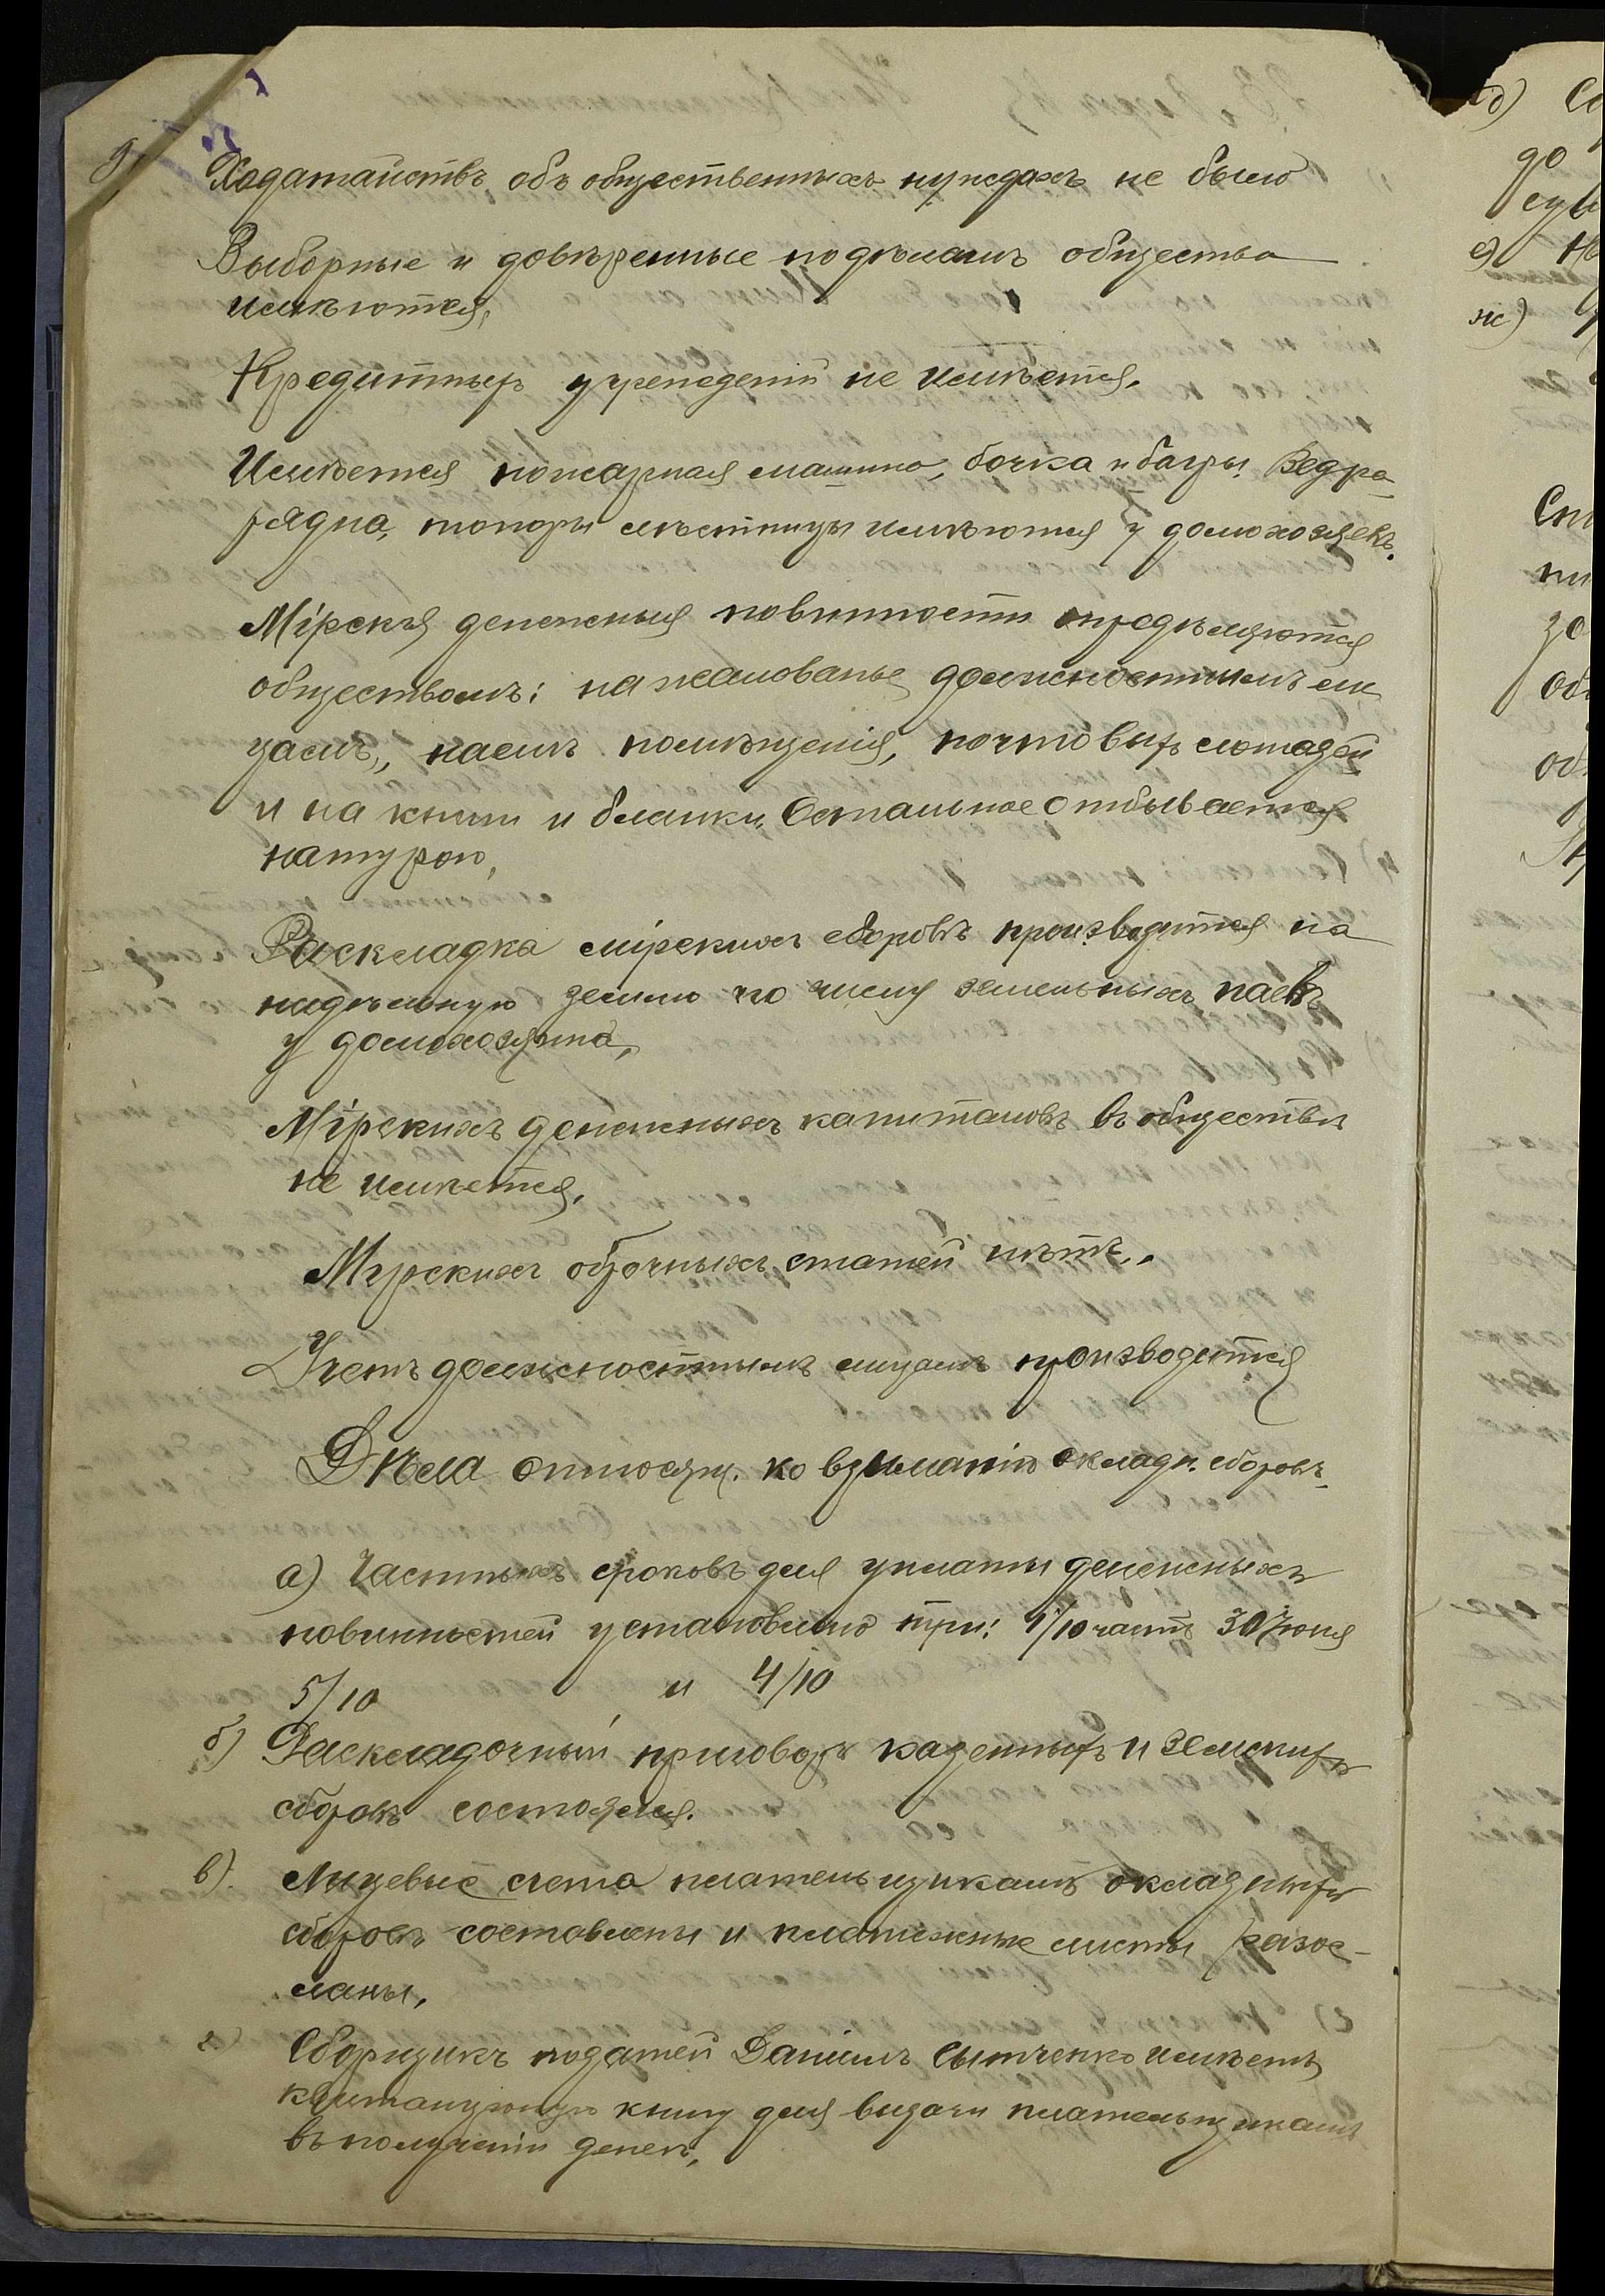 Ходатайствъ объ общественныхъ нуждахъ не было
Выборные и довѣренные по дѣламъ общества
имѣются,
Кредитныхъ учреждегій не имѣется.
Имѣется пожарная машина, бочка и багры. Ведра
рядна, топоры лѣстницы имѣются у домохозяевъ.
Мірскія денежныя повинности опредѣляются
обществомъ: на жалованье должностнымъ ли
цамъ, наемъ помѣщенія, почтовыхъ лошадей
и на книги и бланки. Остальное отбывается
натурою,
Раскладка мірскихъ сборовъ производится на
надѣльную землю по числу земельныхъ паевъ
у домохозяина,
Мірскихъ денежныхъ капиталовъ въ обществѣ
не имѣется,
Мірскихъ оброчныхъ статей нѣтъ.
Учетъ должностнымъ лицамъ производится
Дѣла относящ. ко взиманію окладн. сборовъ
а) Частныхъ сроковъ для уплаты денежныхъ
повинностей установлено три: 1/10 часть 30 Іюня
5/10 и 4/10
б) Раскладочный приговоръ казенныхъ и земскихъ
сборовъ состоялся.
в). Лицевые счета плательщикамъ окладныхъ
сборовъ составлены и платежные листы разос-
ланы,
г) Сборщикъ податей Даніилъ Сытченко имѣетъ
квитанціонную книгу для выдачи плательщикамъ
въ полученіи денегъ,
д) Со
до
е)
ж)